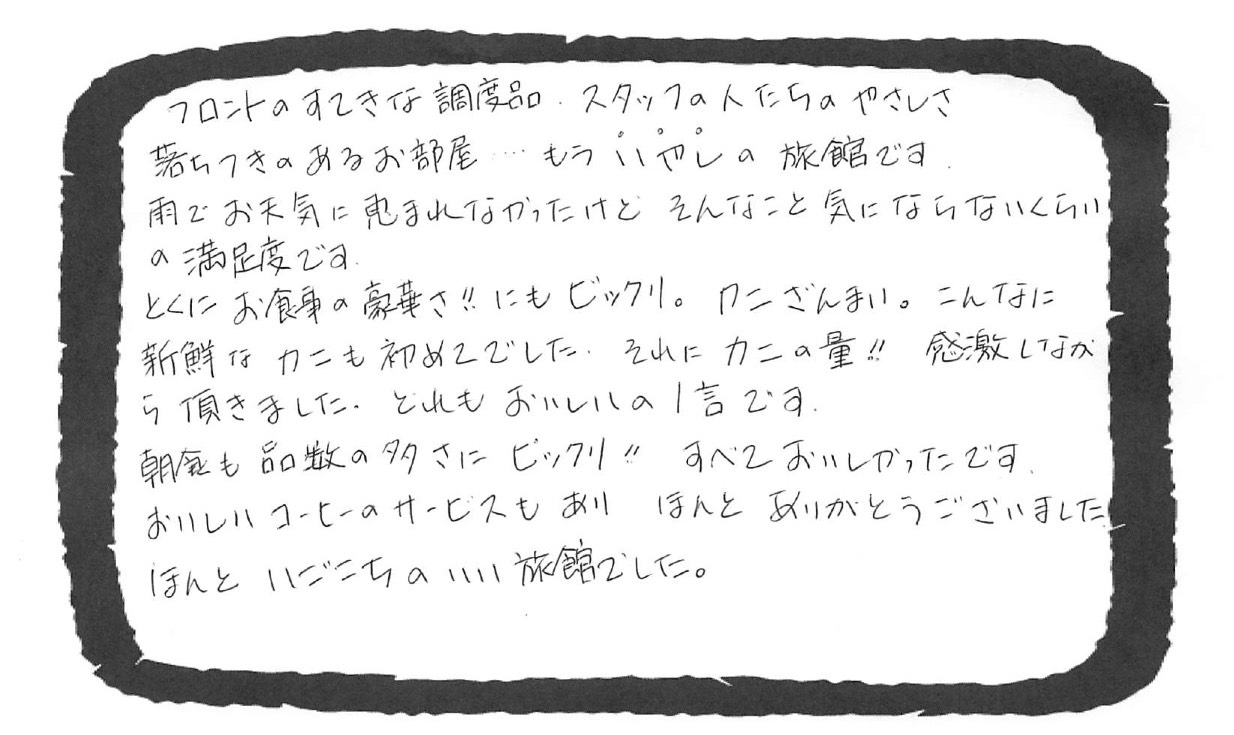 フロントのすてきな調度品．スタッフの人たちのやさしさ
落ちつきのあるお部屋…もういやしの旅館です．
雨でお天気に恵まれなかったけど そんなこと気にならないくらい
の満足度です．
とくにお食事の豪華さ!!にもビックリ。カニざんまい。こんなに
新鮮なカニも初めてでした．それにカニの量!! 感激しなが
ら頂きました．どれもおいしいの1言です．
朝食も品数の多さにビックリ!! すべておいしかったです．
おいしいコーヒーのサービスもあり ほんとありがとうございました
ほんと いごこちのいい旅館でした。